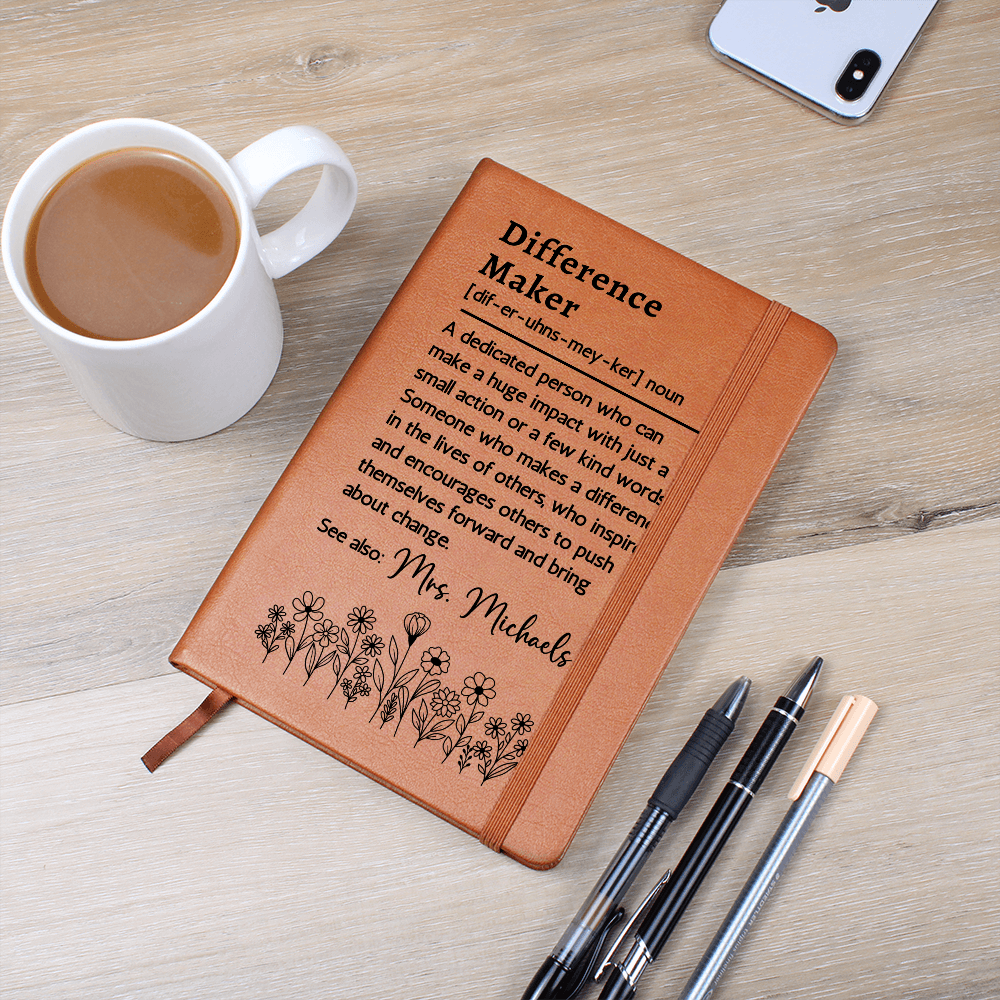 Difference
Maker
[dif-er-uhns-mey-ker] noun
A dedicated person who can
make a huge impact with just a
small action or a few kind words
Someone who makes a differen
in the lives of others, who inspir
and encourages others to push
themselves forward and bring
about change.
See also: Mrs. Michaels